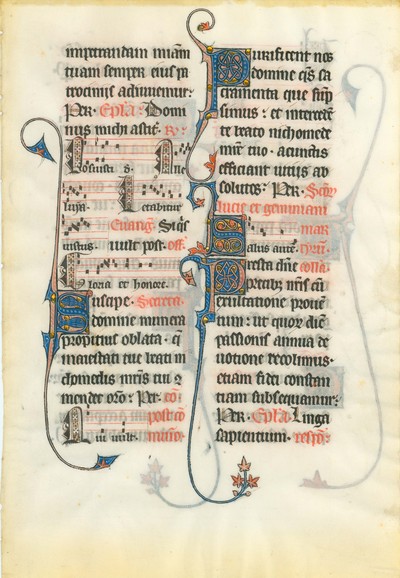 impetrandam misericordiam
tuam semper eius pa
trocinijs adiuuemur.
Per. Epla. Domi
nus michi astit. R.
Posuisti d. Alle
luya. Letabitur
iustus. Euang. Siqs
uult post. off.
Gloria et honore.
Suscipe. Secreta.
domine munera
propitius oblata. q
maiestati tue beati ni
chomedis mris tui 9
mendet oro. Per. co
post co
munio.
Purificent nos
domine qs sa
cramenta que sup
simus. et intercede
te beato nichomede
mre tuo. a cunctis
efficiant uitijs ab
solutos. Per. Scor
lucie et geminiani
mar
Saluus aute. tyrum.
Presta dne colla.
precibus nris cu
exultatione prouen
tum. ut quor die
passionis annua de
uotione recolimus.
etiam fidei constan
tiam subsequamur.
Per. Epla. Lingua
sapientium. respon.